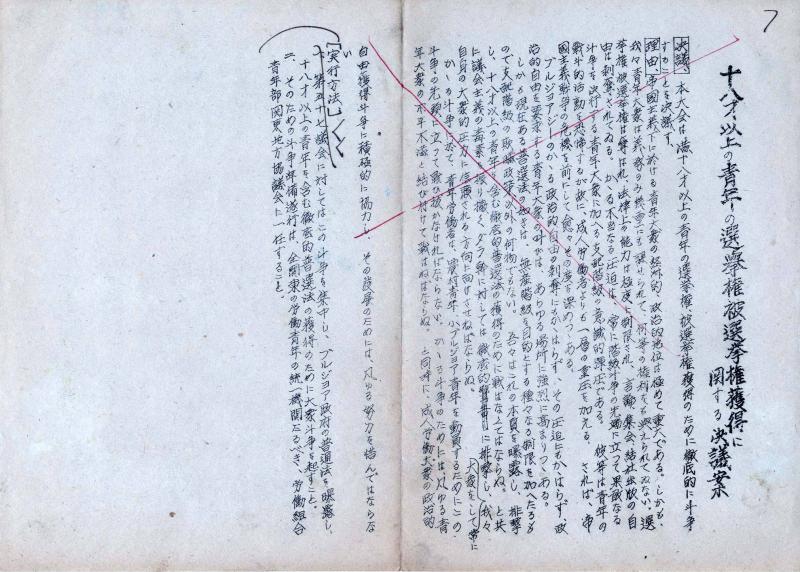 7
十八才以上の青年の選挙権被選挙権獲得に
関する決議案
決議、本大会は満十八才以上の青年の選挙権被選挙権獲得のために徹底的に斗争
することを決議す。
理由、帝国主義下に於ける青年大衆の経済的、政治的地位は極めて重大である。しかも、
我々青年大衆は義務のみ
何等の権利をも与えられてゐない。選
挙権被選挙権は奪はれ、法律上の能力は極度に制限され、言論集会結社出版の自
由は剥奪されてゐる。かゝる不当なる圧迫は、常に階級斗争の先端に立つて果敢なる
斗争を決行する青年大衆に加へる支配階級の意識的弾圧である。彼等は青年の
戦斗的活動を恐怖するが故に、成人労働者よりも一層の重圧を加える。されば、帝
国主義戦争の危機を前にして
その度を深めつゝある。
ブルジョアジーのかゝる政治的自由の剥奪にもかゝはらず、その圧迫にもかゝはらず、政
治的自由を要求する青年大衆の叫びは、あらゆる場所に強烈に高まりつゝある。
しかも現在ある普選法の如きは、無産階級を目的とする種々なる制限を加へたるも
ので支配階級の欺瞞政策以外の何物でもない。吾々はこれの本質を曝露し、排撃
し、十八才以上の青年を含む徹底的普選法の獲得のために戦はなければならぬ。と共
に議会主義の毒素を振り撒くダラ幹に対しては徹底的に排撃し、我々
大衆をして常に
自身の大衆的圧力に信頼される方向に向けさせねばならぬ。
かゝる斗争に於て、青年労働者は、農村青年、小ブルジョア青年を動員するためにこの
斗争の先頭に立つて戦ひ抜かなければならない。かゝる斗争のためには凡ゆる青
年大衆の不平不満と結び付けて戦はねばならぬ。と同時に、成人労働大衆の政治的
自由獲得斗争に積極的に協力し、その援助のためには、凡ゆる努力を惜んではならな
い
[実行方法]
一、第五十七議会に対してはこの斗争を集中し、ブルジョア政府の普選法を曝露し、
十八才以上の青年を含む徹底的普選法の獲得のために大衆斗争を起すこと。
二、そのための斗争準備遂行は、全関東の労働青年の統一機関たるべき、労働組合
青年部関東地方協議会に一任すること。